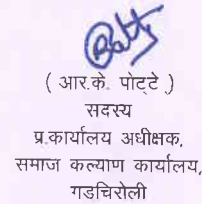 ( आर.के. पोटटे )
सदस्य
प्र.कार्यालय अधीक्षक,
समाज कल्याण कार्यालय,
गडचिरोली